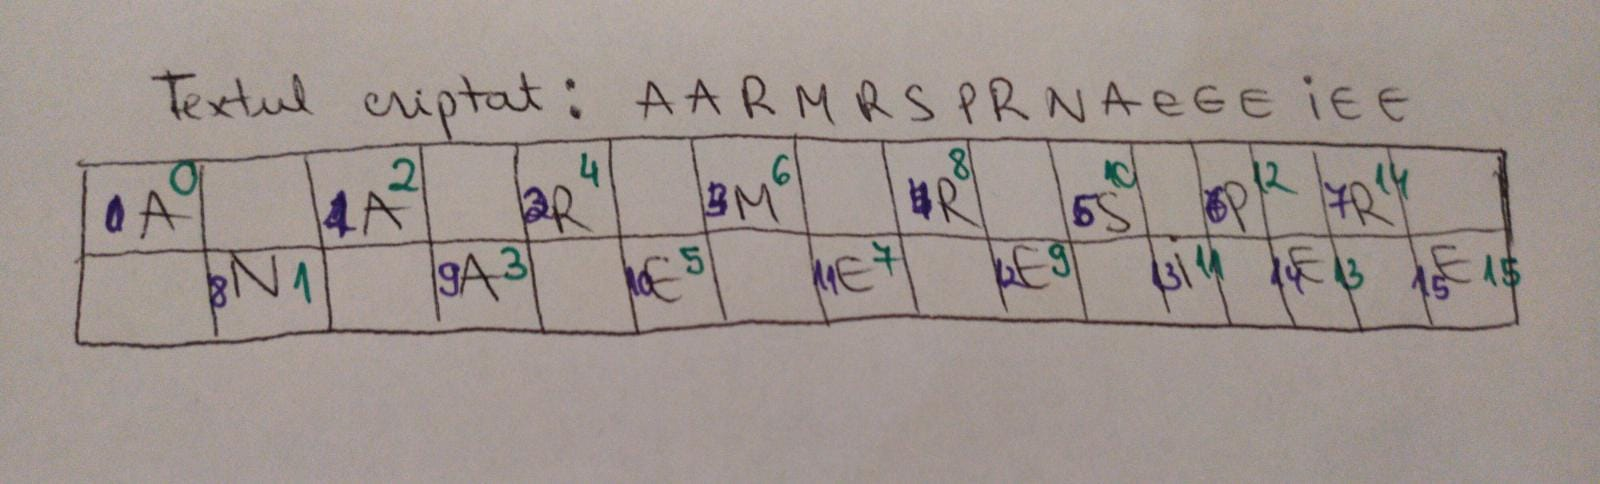 Textul criptat: AARMRSPRNAeEEiEE
0 A 0 1 A 2 2 R 4 3 M 6 4 R 8 5 S 10 6 P 12 7 R 14
8 N 1 9 A 3 10 E 5 11 E 7 12 E 9 13 i 11 14 E 13 15 E 15